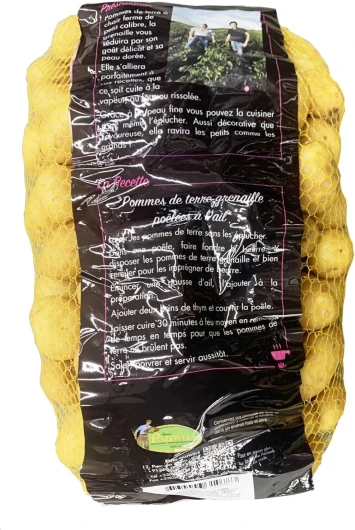 Pommes de terre à
chair ferme de
petit calibre, la
grenaille vous
séduira par son
goût délicat et sa
peau dorée.
Elle s'alliera
parfaitement à
vos recettes, que
ce soit cuite à la
vapeur, au four ou rissolée.
Grâce à sa peau fine vous pouvez la cuisiner
sans même l'éplucher. Aussi décorative que
savoureuse, elle ravira les petits comme les
grands !
La Recette
Pommes de terre grenaille
poêlées à l'ail
les pommes de terre sans les éplucher.
Dans une poêle faire fondre le beurre
disposer les pommes de terre grenaille et bien
remuer pour les imprégner de beurre.
Émincer une gousse d'ail, l'ajouter à la
préparation.
Ajouter deux brins de thym et couvrir la poêle.
Laisser cuire 30 minutes à feu moyen en remuant
de temps en temps pour que les pommes de
terre ne brûlent pas.
Saler, poivrer et servir aussitôt.